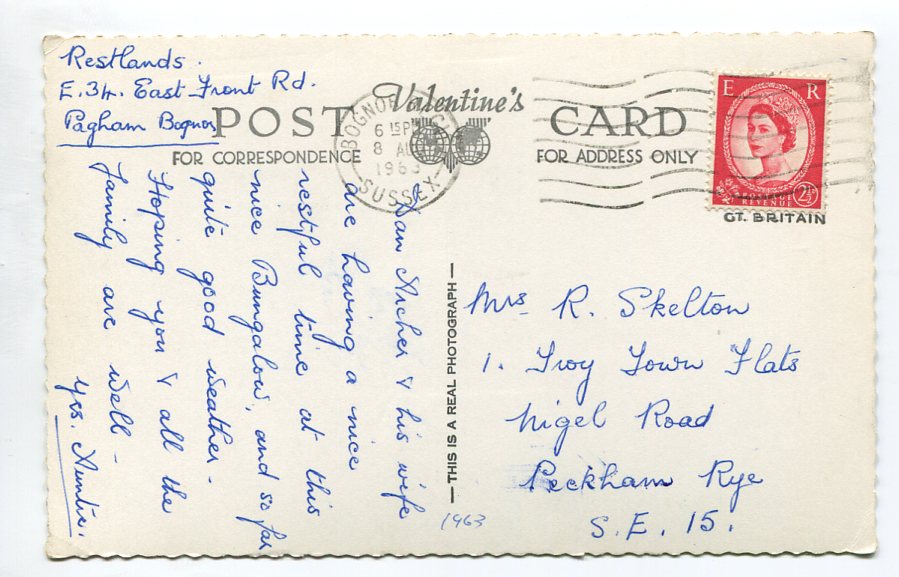 Restlands.
E.34. East Front Rd.
Pagham Bognor
POST CARD
Valentine's
FOR CORRESPONDENCE
FOR ADDRESS ONLY
BOGNOR
6 15PM
8 AU
1963
SUSSEX
E R
REVENUE
2½D
GT. BRITAIN
Archer & his wife
are having a nice
restful time at this
nice Bungalow, and so far
quite good weather -
Hoping you & all the
family are well -
Yrs. Auntie.
— THIS IS A REAL PHOTOGRAPH —
Mrs R. Skelton
1. Troy Town Flats
Nigel Road
Peckham Rye
S.E. 15.
1963